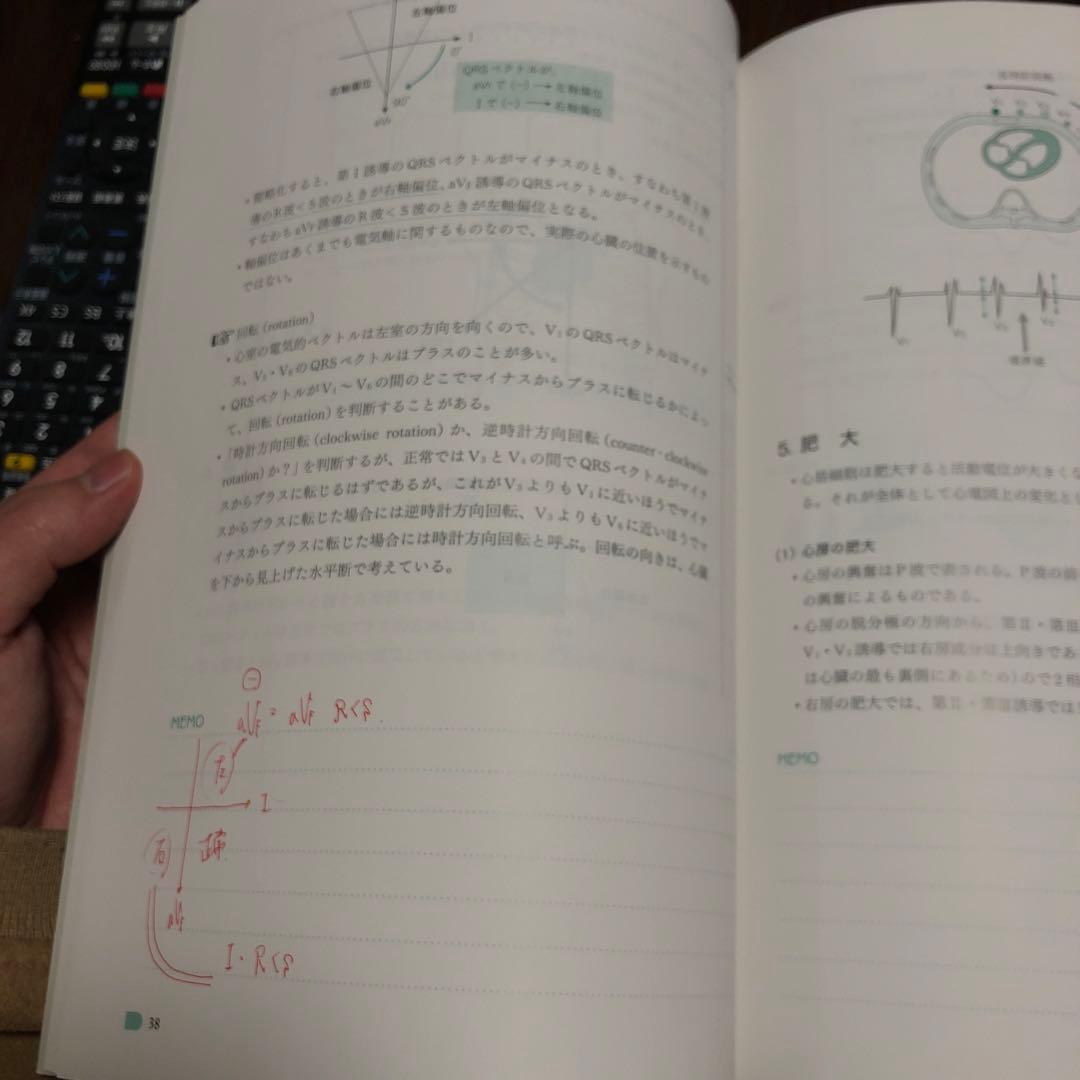 右軸偏位
I
0°
右軸偏位
90°
aVF
QRSベクトルが、
aVFで(−)→左軸偏位
Iで(−)→右軸偏位
・簡略化すると、第I誘導のQRSベクトルがマイナスのとき、すなわち第I誘
導のR波<S波のときが右軸偏位、aVF誘導のQRSベクトルがマイナスのとき、
すなわちaVF誘導のR波<S波のときが左軸偏位となる。
・軸偏位はあくまでも電気軸に関するものなので、実際の心臓の位置を示すもの
ではない。
回転(rotation)
・心室の電気的ベクトルは左室の方向を向くので、V1のQRSベクトルはマイナ
ス、V5・V6のQRSベクトルはプラスのことが多い。
・QRSベクトルがV1〜V6の間のどこでマイナスからプラスに転じるかによっ
て、回転(rotation)を判断することがある。
・「時計方向回転(clockwise rotation)か、逆時計方向回転(counter-clockwise
rotation)か?」を判断するが、正常ではV3とV4の間でQRSベクトルがマイナ
スからプラスに転じるはずであるが、これがV3よりもV1に近いほうでマイナ
スからプラスに転じた場合には逆時計方向回転、V3よりもV6に近いほうでマ
イナスからプラスに転じた場合には時計方向回転と呼ぶ。回転の向きは、心臓
を下から見上げた水平断で考えている。
⊖
MEMO
aVF = aVF R<S
左
I
右
正常
aVF
I・R<S
38
V1
V2
V3
5. 肥 大
・心筋細胞は肥大すると活動電位が大きくな
る。それが全体として心電図上の変化と
(1) 心房の肥大
・心房の興奮はP波で表される。P波の前
の興奮によるものである。
・心房の脱分極の方向から、第II・第III
V1・V2誘導では右房成分は上向きであ
は心臓の最も裏側にあるため)ので2相
・右房の肥大では、第II・第III誘導では
MEMO